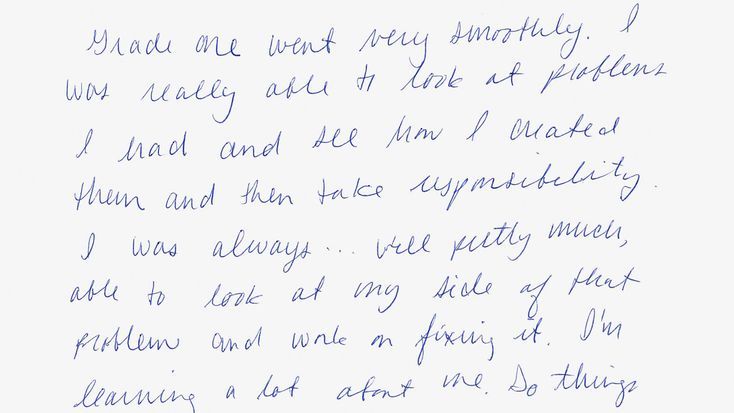 Grade one went very smoothly. I
was really able to look at problems
I had and see how I created
them and then take responsibility.
I was always... well pretty much,
able to look at my side of that
problem and work on fixing it. I'm
learning a lot about me. Do things